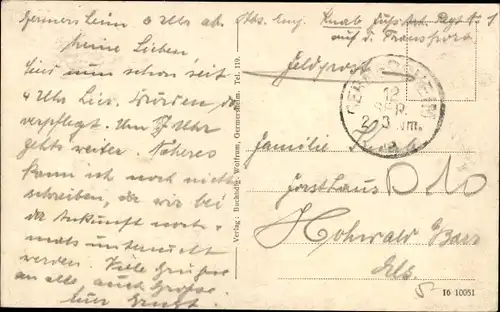 Germersheim 6 Uhr ab.
Meine Lieben
Sind nun schon seit
4 Uhr hier. Wurden da
verpflegt. Um 7 Uhr
gehts weiter. Näheres
kann ich noch nicht
schreiben, da wir bei
der Ankunft noch-
mals untersucht
werden. Viele Grüsse
an alle, auch Grosse.
Euer Ernst.
Verlag: Buchhdlg. Wolfram, Germersheim. Tel. 119.
Knab
auf d. Transport
Feldpost
GERMERSHEIM
12
APR.
2-3 Nm.
Familie Knab
Forsthaus
Hohwald b/Barr
Els.
16 10051